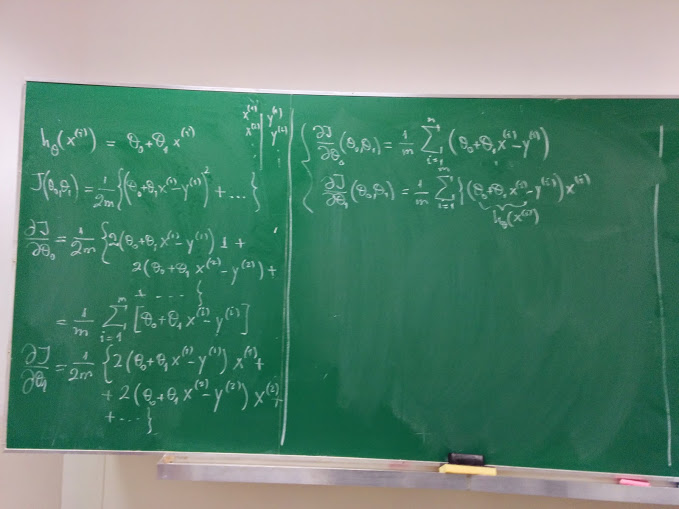 x⁽¹⁾ | y⁽¹⁾
x⁽²⁾ | y⁽²⁾
h_θ(x⁽ⁱ⁾) = θ₀+θ₁ x⁽ⁱ⁾
J(θ₀,θ₁) = 1/2m {(θ₀+θ₁x⁽¹⁾-y⁽¹⁾)² + ... }
∂J/∂θ₀ = 1/2m {2(θ₀+θ₁x⁽¹⁾-y⁽¹⁾) 1 +
2(θ₀+θ₁ x⁽²⁾-y⁽²⁾) +
+ ... }
= 1/m Σ_{i=1}^{m} [θ₀+θ₁x⁽ⁱ⁾-y⁽ⁱ⁾]
∂J/∂θ₁ = 1/2m {2(θ₀+θ₁x⁽¹⁾-y⁽¹⁾) x⁽¹⁾+
+ 2(θ₀+θ₁x⁽²⁾-y⁽²⁾) x⁽²⁾+
+ ... }
∂J/∂θ₀ (θ₀,θ₁) = 1/m Σ_{i=1}^{m} (θ₀+θ₁x⁽ⁱ⁾-y⁽ⁱ⁾)
∂J/∂θ₁ (θ₀,θ₁) = 1/m Σ_{i=1}^{m} {(θ₀+θ₁x⁽ⁱ⁾-y⁽ⁱ⁾)x⁽ⁱ⁾
h_θ(x⁽ⁱ⁾)